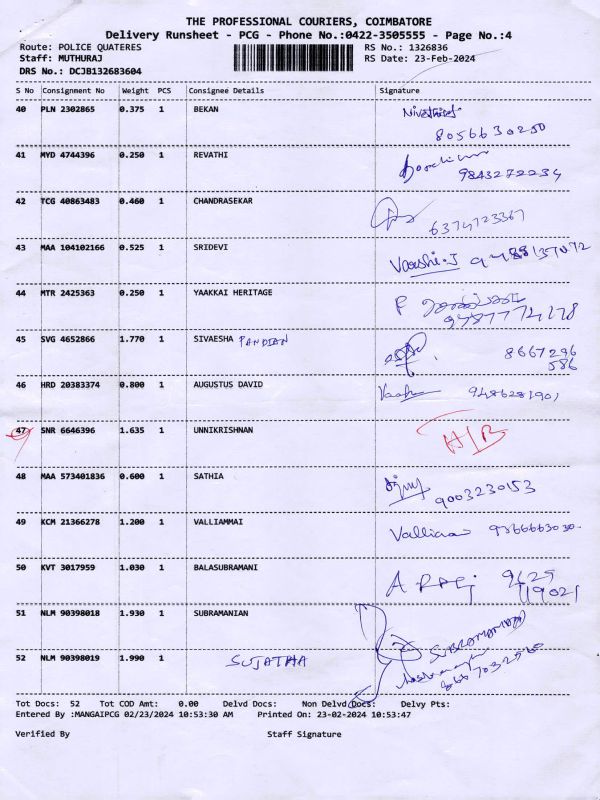 THE PROFESSIONAL COURIERS, COIMBATORE
Delivery Runsheet - PCG - Phone No.:0422-3505555 - Page No.:4
Route: POLICE QUATERES RS No.: 1326836
Staff: MUTHURAJ RS Date: 23-Feb-2024
DRS No.: DCJB132683604
S No Consignment No Weight PCS Consignee Details Signature
40 PLN 2302865 0.375 1 BEKAN
8056630250
41 MYD 4744396 0.250 1 REVATHI
9843272234
42 TCG 40863483 0.460 1 CHANDRASEKAR
6374723367
43 MAA 104102166 0.525 1 SRIDEVI Varshi.J
44 MTR 2425363 0.250 1 YAAKKAI HERITAGE
45 SVG 4652866 1.770 1 SIVAESHA PANDIAN 8667296
586
46 HRD 20383374 0.800 1 AUGUSTUS DAVID 9486281901
47 SNR 6646396 1.635 1 UNNIKRISHNAN H/B
48 MAA 573401836 0.600 1 SATHIA
9003230153
49 KCM 21366278 1.200 1 VALLIAMMAI
50 KVT 3017959 1.030 1 BALASUBRAMANI
51 NLM 90398018 1.930 1 SUBRAMANIAN
52 NLM 90398019 1.990 1 SUJATHA
Tot Docs: 52 Tot COD Amt: 0.00 Delvd Docs: Non Delvd Docs: Delvy Pts:
Entered By :MANGAIPCG 02/23/2024 10:53:30 AM Printed On: 23-02-2024 10:53:47
Verified By Staff Signature